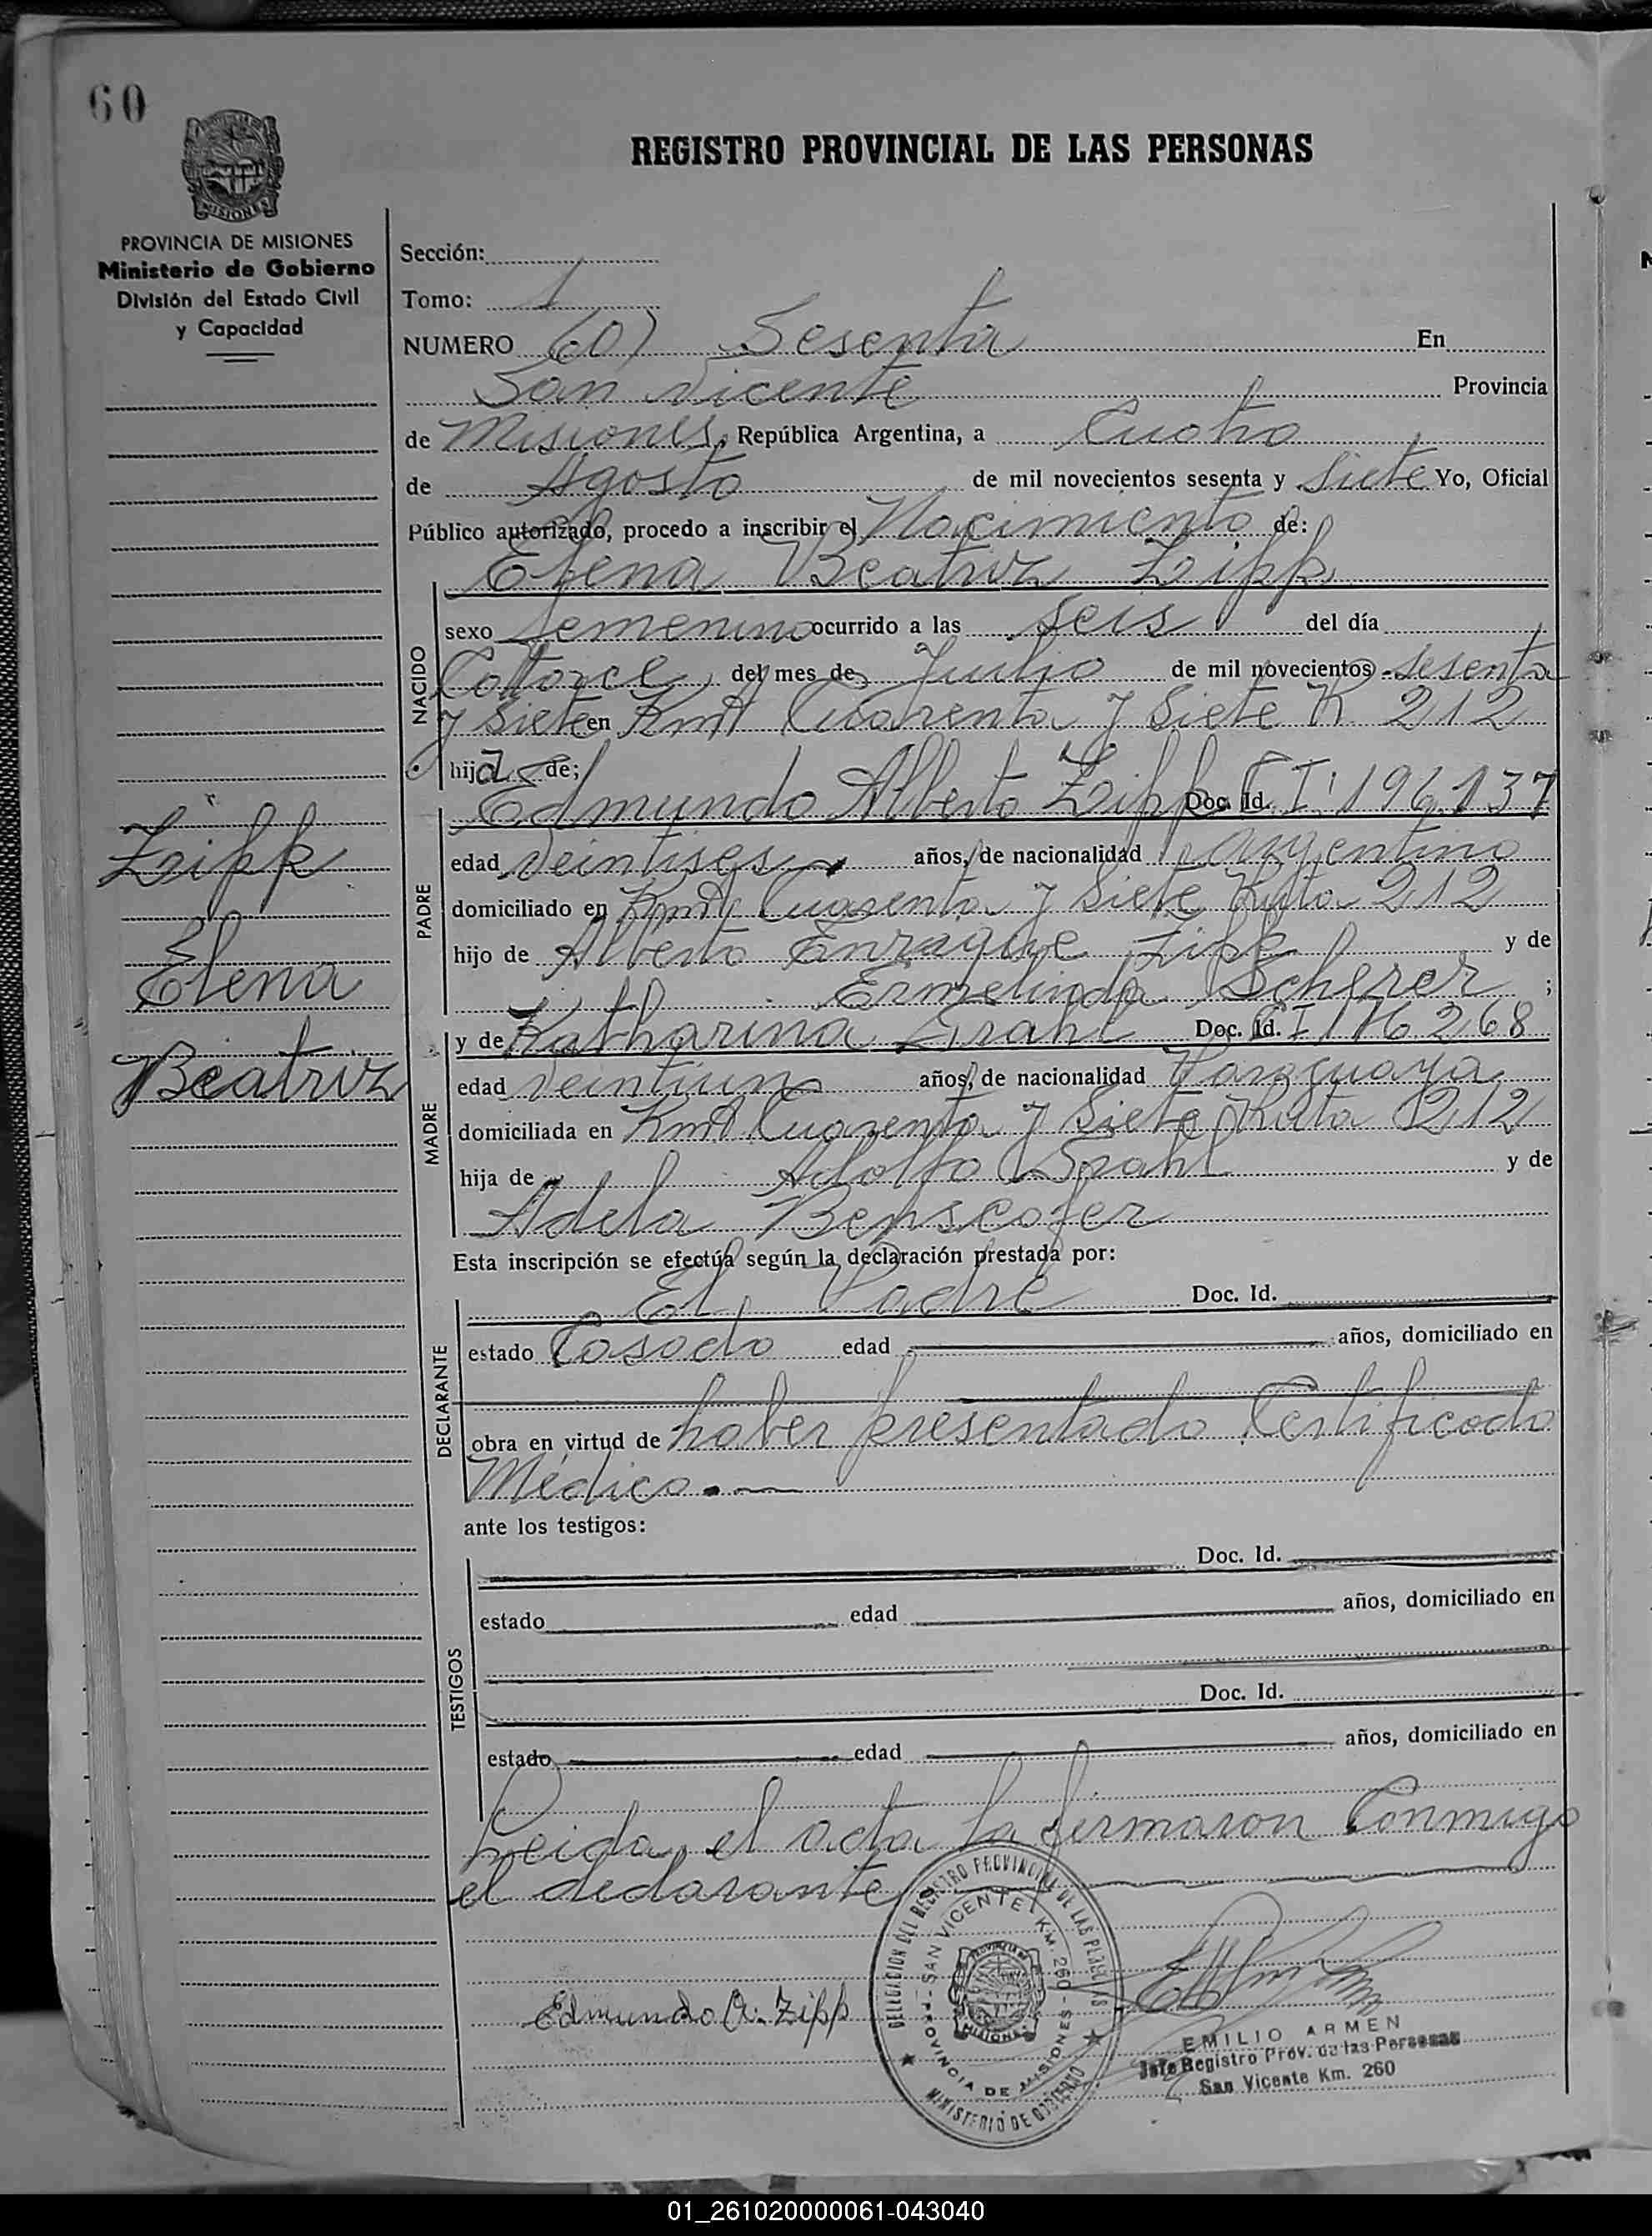 60
REGISTRO PROVINCIAL DE LAS PERSONAS
MISIONES
PROVINCIA DE MISIONES
Ministerio de Gobierno
División del Estado Civil
y Capacidad
Sección:
Tomo: 1
NUMERO 60) Sesenta En
San Vicente Provincia
de Misiones, República Argentina, a Cuatro
de Agosto de mil novecientos sesenta y Siete Yo, Oficial
Público autorizado, procedo a inscribir el Nacimiento de:
Elena Beatriz Zipp
NACIDO
sexo Femenino ocurrido a las Seis del día
Catorce del mes de Julio de mil novecientos sesenta
y Siete en Kmt Cuarenta y Siete R 212
hija de;
Edmundo Alberto Zipp Doc. Id. C I 196.137
PADRE
edad veintiseis años, de nacionalidad argentino
domiciliado en Kmt Cuarenta y Siete Ruta 212
hijo de Alberto Enrique Zipp y de
Ermelinda Scherer ;
Zipp
Elena
Beatriz
MADRE
y de Katharina Doc. Id. C I 176.268
edad veintiuno años, de nacionalidad Paraguaya
domiciliada en Kmt Cuarenta y Siete Ruta 212
hija de Adolfo y de
Adela
Esta inscripción se efectúa según la declaración prestada por:
DECLARANTE
El Padre Doc. Id.
estado Casado edad años, domiciliado en
obra en virtud de haber presentado Certificado
Médico.
ante los testigos:
TESTIGOS
Doc. Id.
estado edad años, domiciliado en
Doc. Id.
estado edad años, domiciliado en
Leida el acta la firmaron Conmigo
el declarante
DELEGACION DEL REGISTRO PROVINCIAL DE LAS PERSONAS
SAN VICENTE KM. 260 - PROVINCIA DE MISIONES
MISIONES
MINISTERIO DE GOBIERNO
Edmundo A. Zipp
EMILIO ARMEN
Jefe Registro Prov. de las Personas
San Vicente Km. 260
01_261020000061-043040